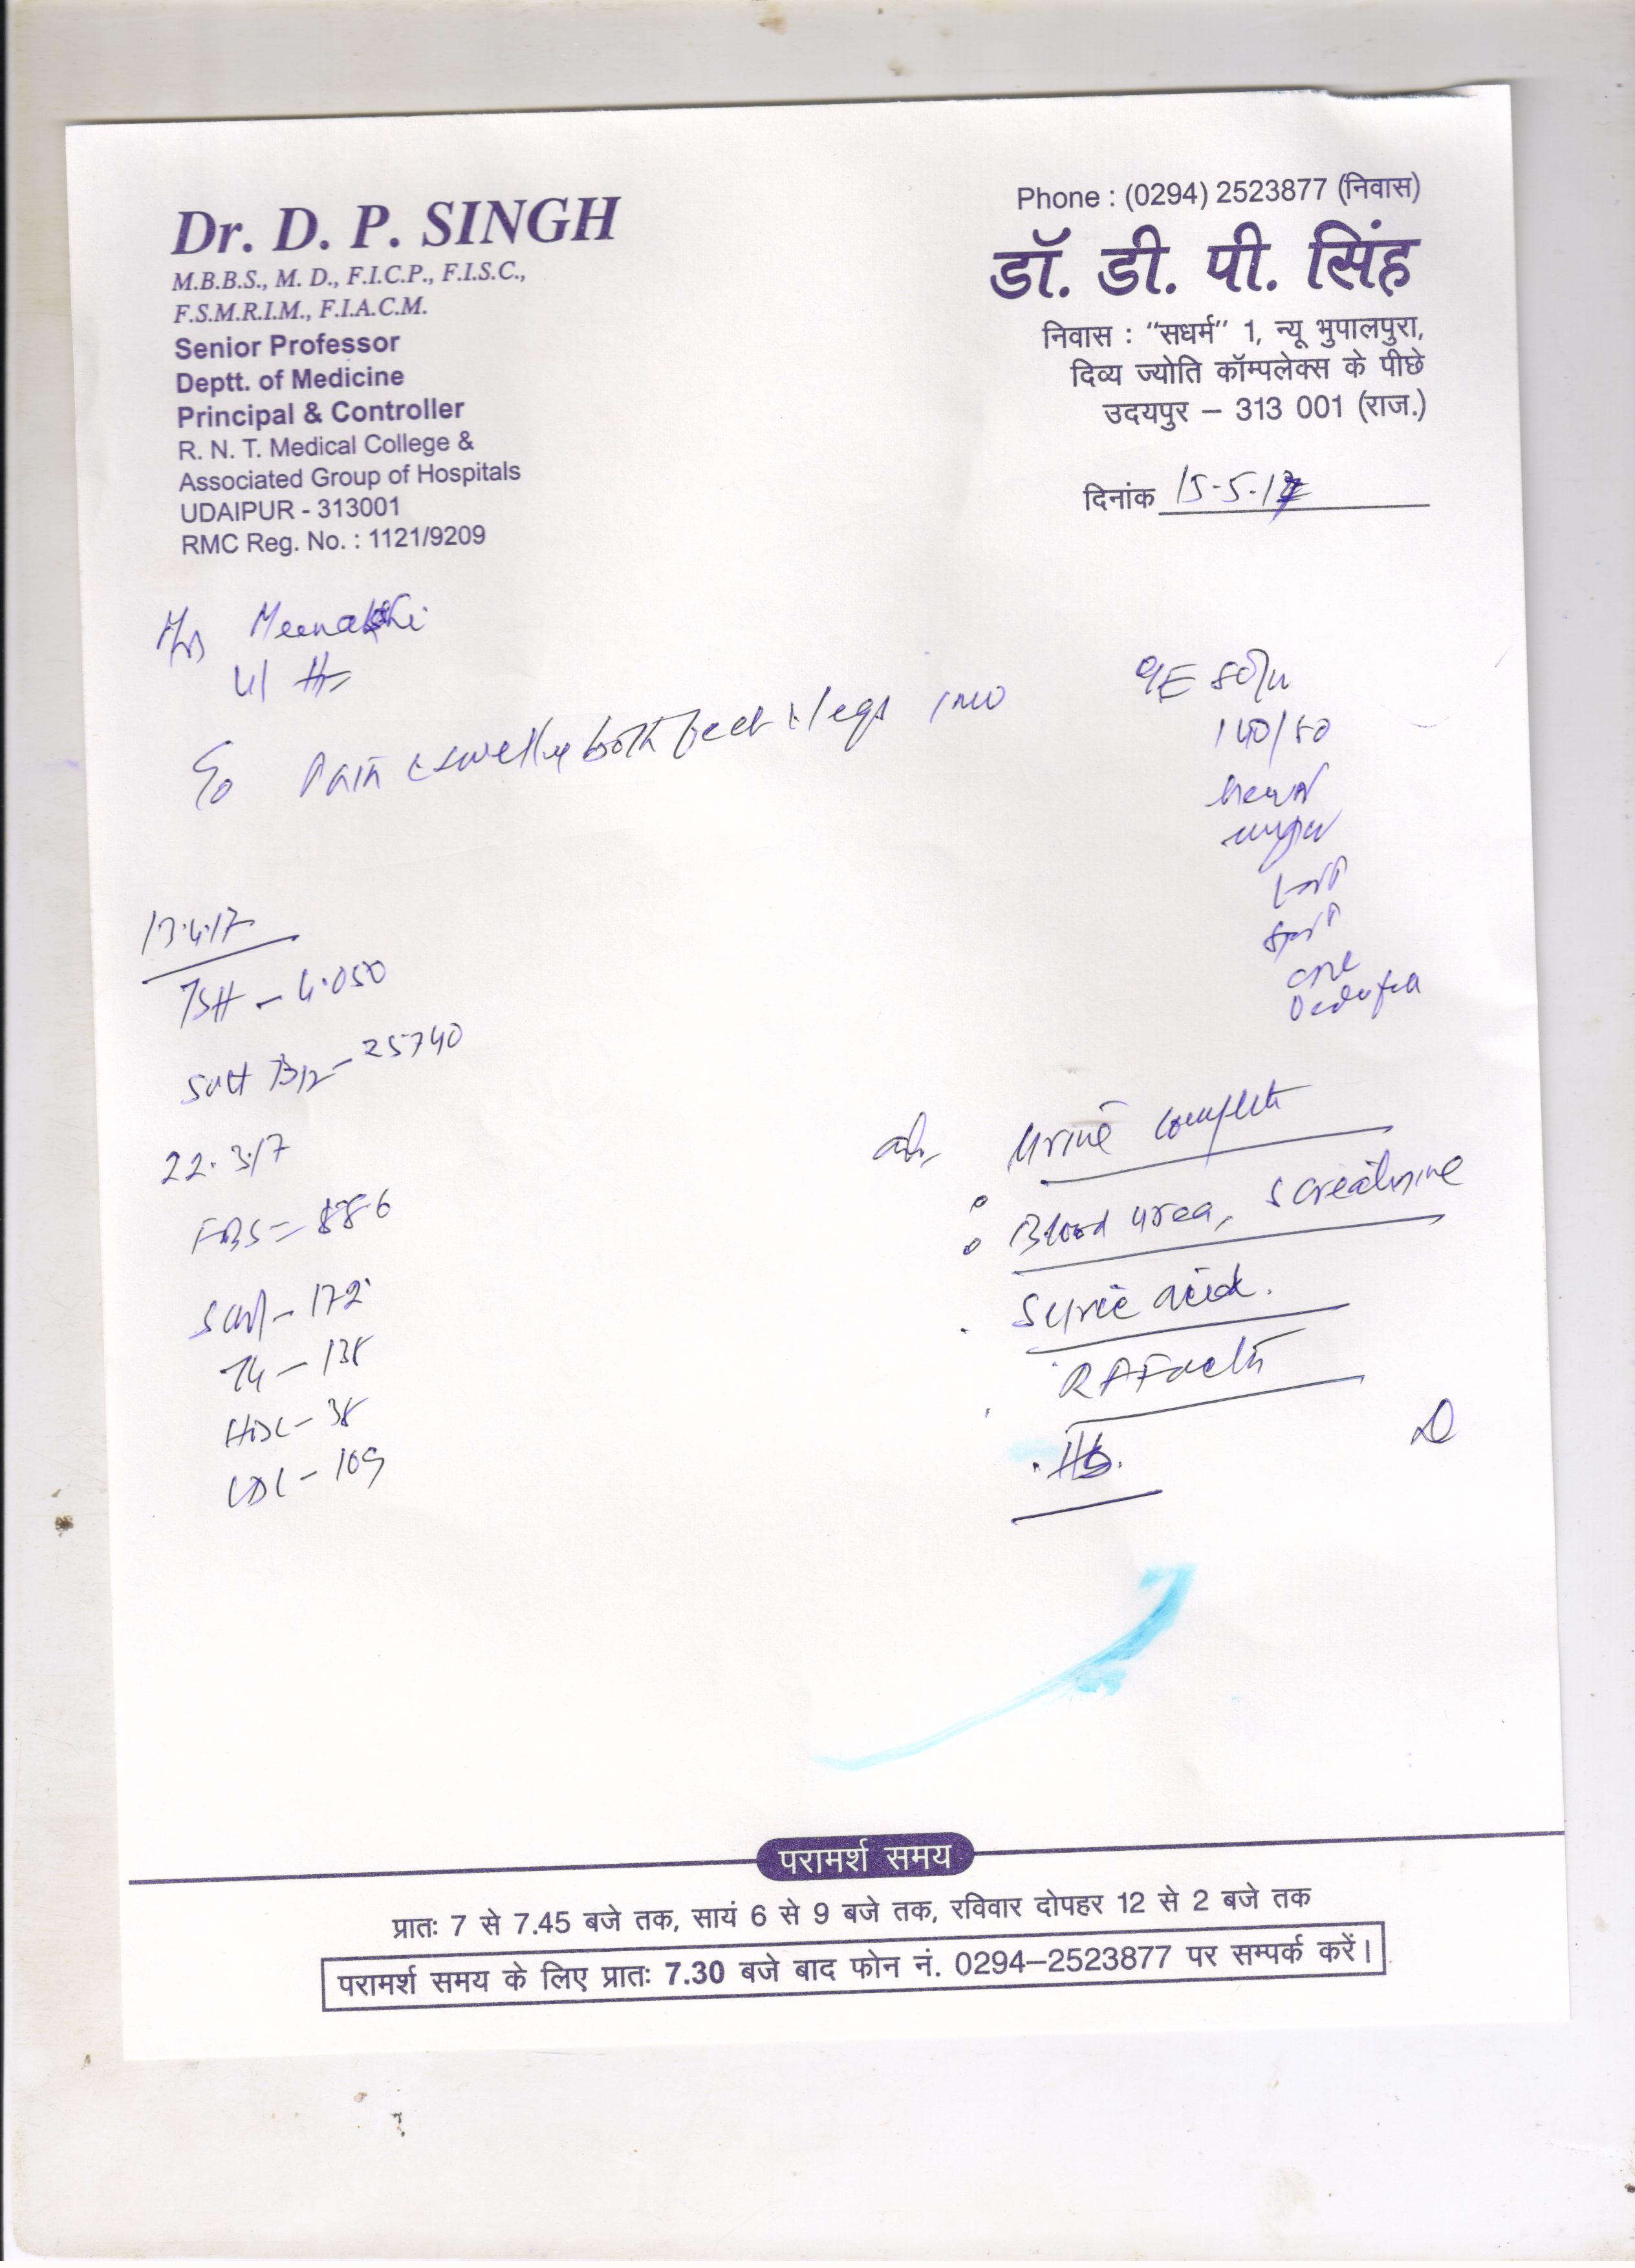 Dr. D. P. SINGH
M.B.B.S., M. D., F.I.C.P., F.I.S.C.,
F.S.M.R.I.M., F.I.A.C.M.
Senior Professor
Deptt. of Medicine
Principal & Controller
R. N. T. Medical College &
Associated Group of Hospitals
UDAIPUR - 313001
RMC Reg. No. : 1121/9209
Phone : (0294) 2523877 (निवास)
डॉ. डी. पी. सिंह
निवास : "सधर्म" 1, न्यू भुपालपुरा,
दिव्य ज्योति कॉम्पलेक्स के पीछे
उदयपुर – 313 001 (राज.)
दिनांक 15-5-17
Mrs Meenakshi
C/o Pain & swelling both feet & legs
O/E 80/m
140/80
13.4.17
TSH - 4.050
B12 - 257.40
22.3.17
FBS = 88.6
S Chol - 172
TG - 138
HDL - 38
LDL - 109
Adv, Urine complete
Blood urea, S creatinine
S uric acid.
RA Factor
Hb.
परामर्श समय
प्रातः 7 से 7.45 बजे तक, सायं 6 से 9 बजे तक, रविवार दोपहर 12 से 2 बजे तक
परामर्श समय के लिए प्रातः 7.30 बजे बाद फोन नं. 0294–2523877 पर सम्पर्क करें।